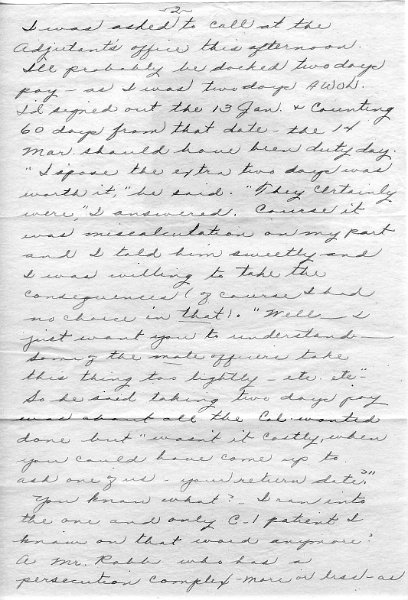 -2-
I was asked to call at the
Adjutant's office this afternoon.
I'll probably be docked two days
pay - as I was two days AWOL.
I'd signed out the 13 Jan. & Counting
60 days from that date - the 14
Mar. should have been duty day.
"I spose the extra two days was
worth it," he said. "They Certainly
were," I answered. Course it
was miscalculation on my part
and I told him sweetly and
I was willing to take the
consequences (of course I had
no choice in that). "Well - I
just want you to understand -
some of the male officers take
this thing too lightly - etc. etc"
So he said taking two days pay
was about all the Col. wanted
done but "wasn't it costly, when
you could have come up to
ask one of us - your return date?"
You know what? - I ran into
the one and only C-1 patient I
know on that ward anymore?
A Mr. Rabb who has a
persecution complex - more or less - as